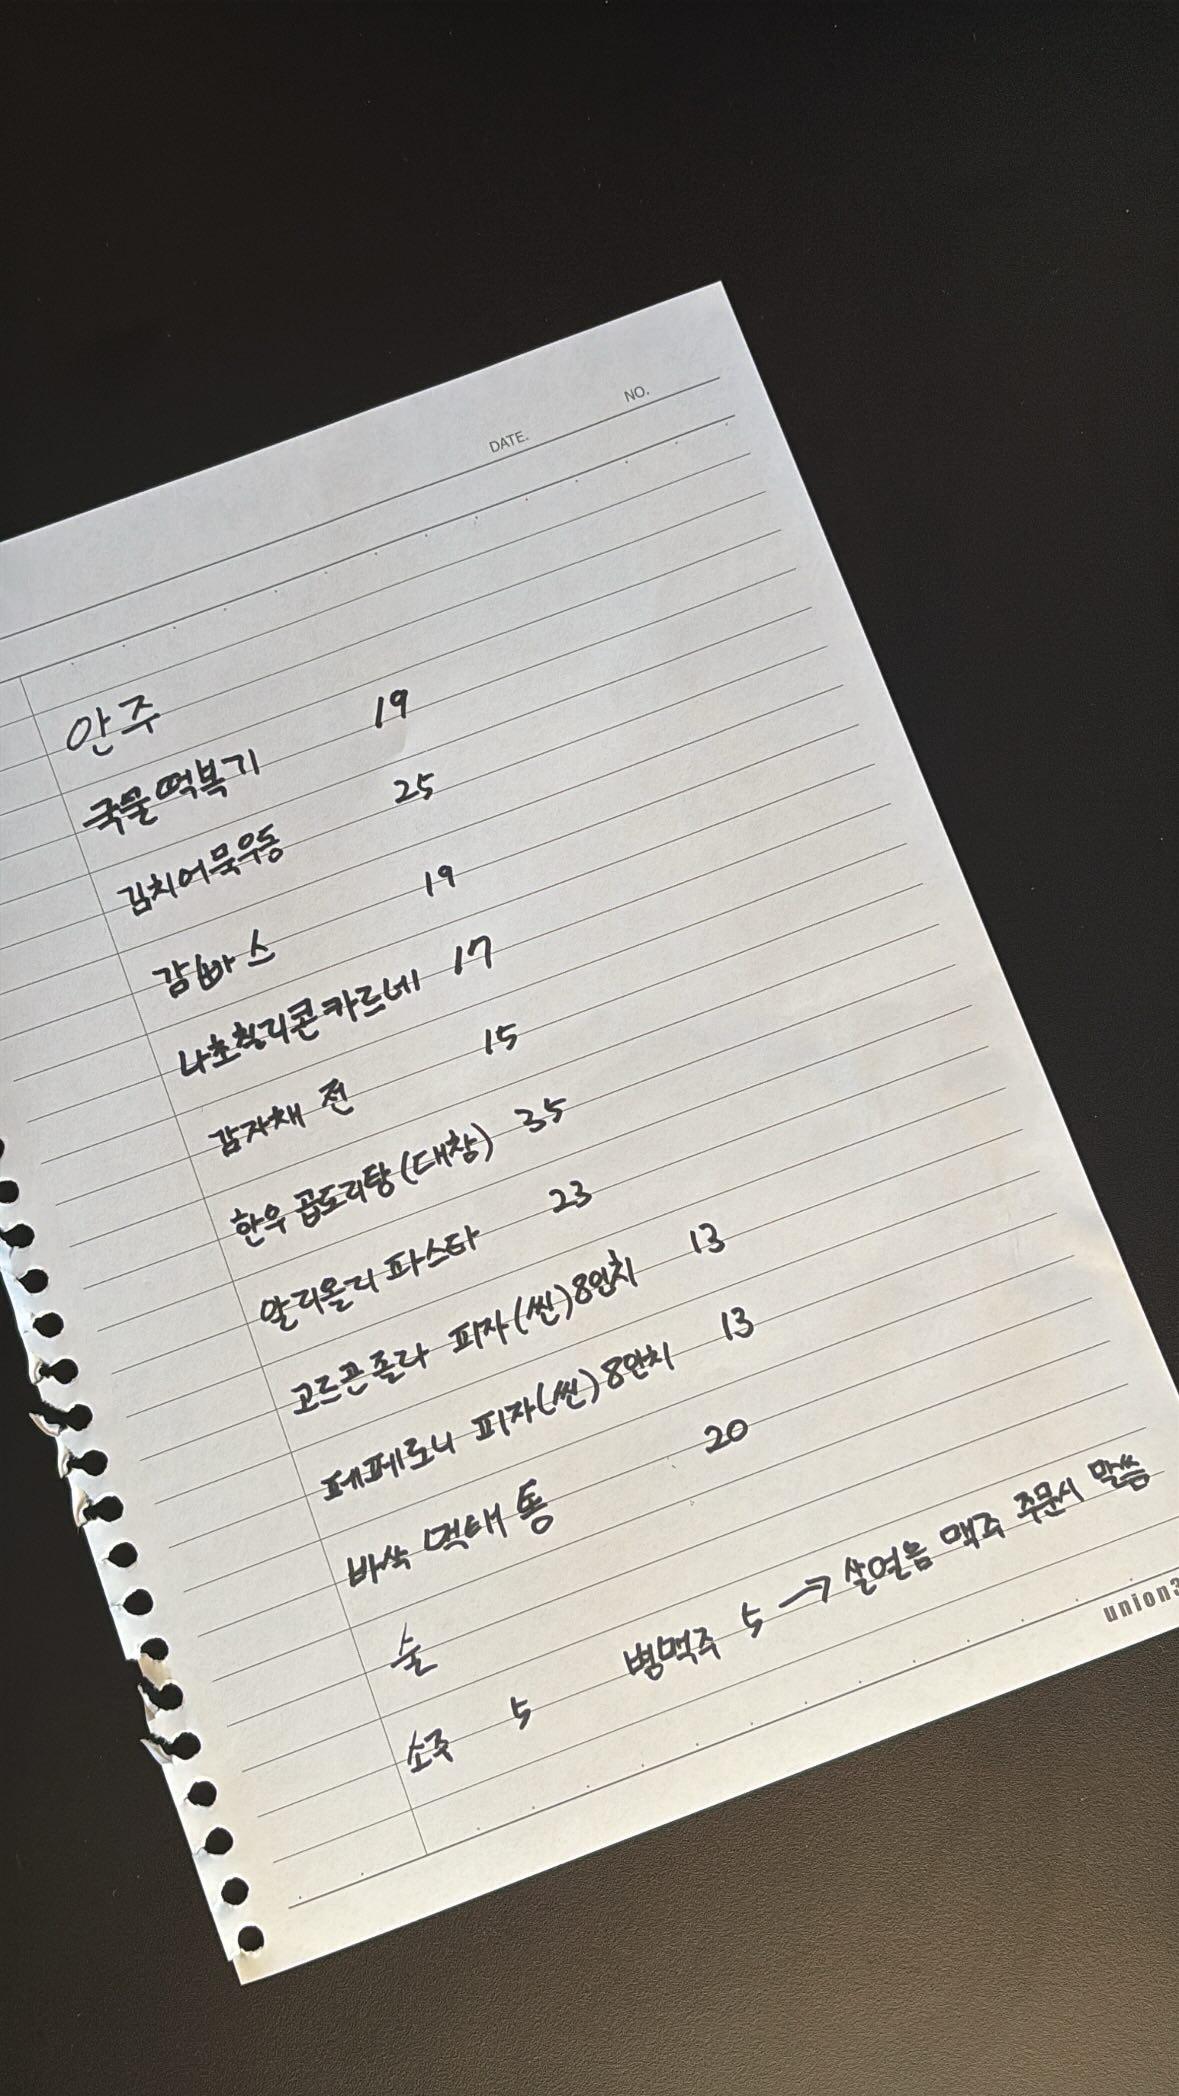 NO.
DATE.
안주
국물떡복기 19
김치어묵우동 25
감빠스 19
나초칠리콘카르네 17
감자채 전 15
한우 곱도리탕(대창) 35
알리올리 파스타 23
고르곤졸라 피자(씬)8인치 13
페페로니 피자(씬)8인치 13
바싹 먹태 통 20
술
소주 5 병맥주 5 → 살얼음 맥주 주문시 말씀
union3